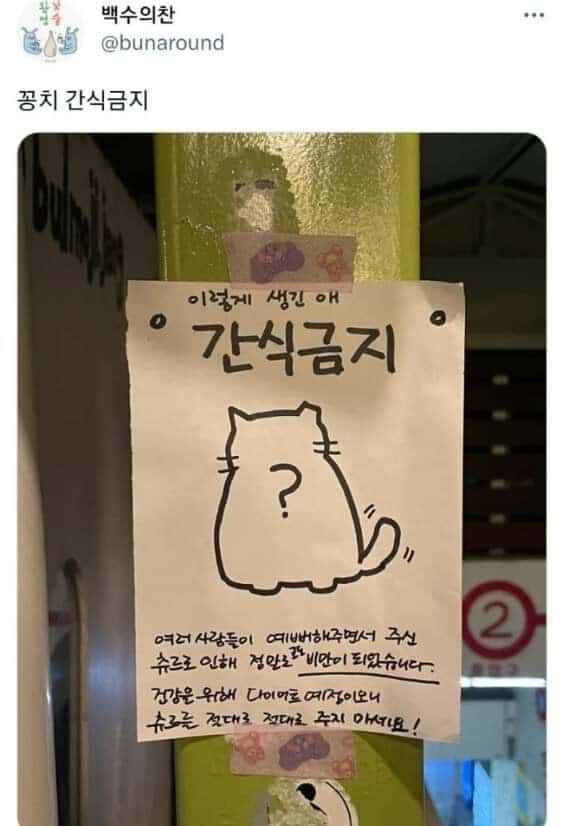 백수의찬
@bunaround
꽁치 간식금지
이렇게 생긴 애
간식금지
?
여러 사람들이 예뻐해주면서 주신
츄르로 인해 정말로 고도비만이 되었습니다.
건강을 위해 다이어트 예정이오니
츄르를 절대로 절대로 주지 마세요!
2
출입구